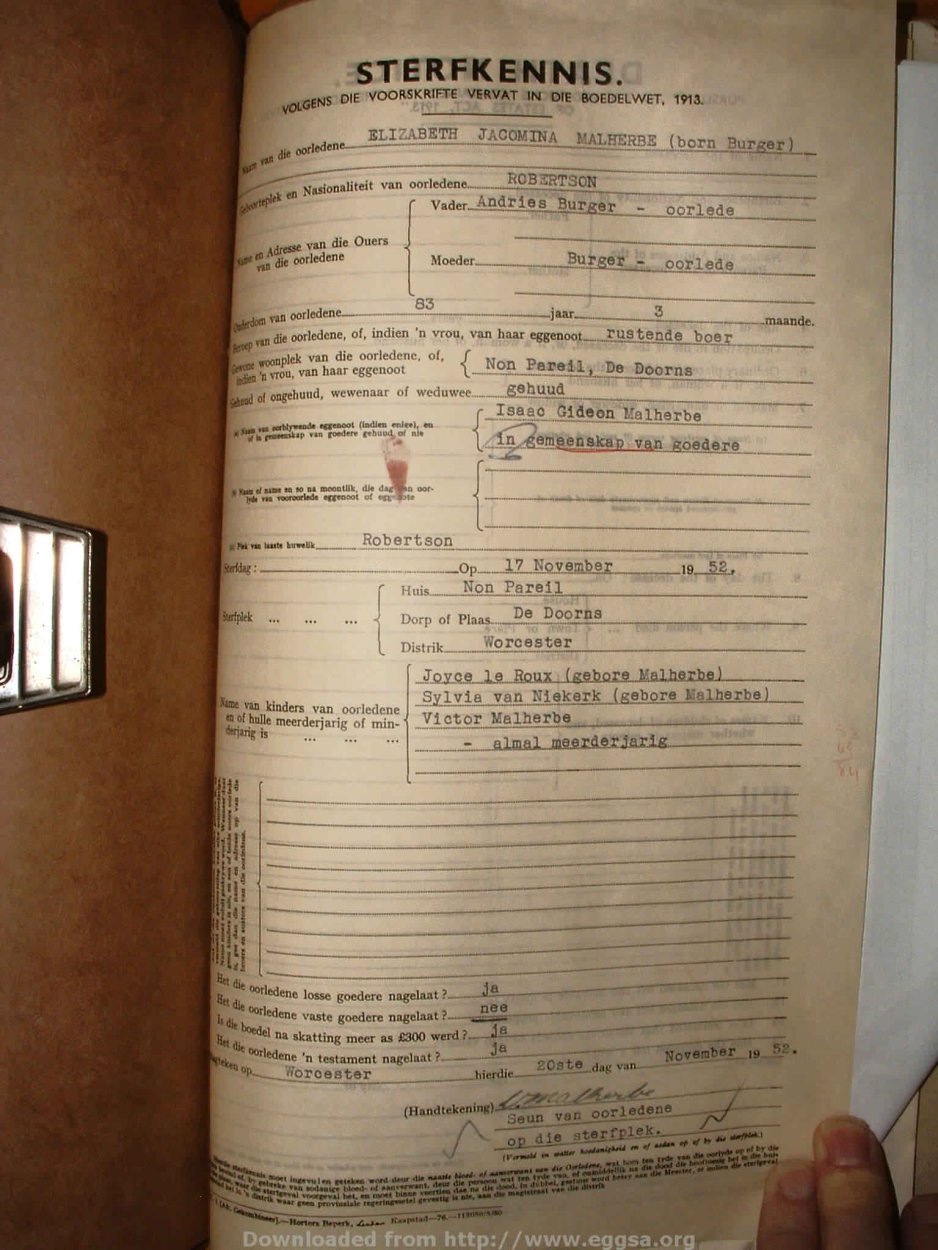 STERFKENNIS.
VOLGENS DIE VOORSKRIFTE VERVAT IN DIE BOEDELWET, 1913.
Naam van die oorledene ELIZABETH JACOMINA MALHERBE (born Burger)
Geboorteplek en Nasionaliteit van oorledene ROBERTSON
Name en Adresse van die Ouers van die oorledene
Vader Andries Burger - oorlede
Moeder Burger - oorlede
Ouderdom van oorledene 83 jaar 3 maande.
Beroep van die oorledene, of, indien 'n vrou, van haar eggenoot rustende boer
Gewone woonplek van die oorledene, of, indien 'n vrou, van haar eggenoot
Non Pareil, De Doorns
Gehuud of ongehuud, wewenaar of weduwee gehuud
(a) Naam van oorblywende eggenoot (indien enige), en of in gemeenskap van goedere gehuud of nie
Isaac Gideon Malherbe
in gemeenskap van goedere
(b) Naam of name en so na moontlik, die dag van oorlyde van vooroorlede eggenoot of eggenote
(c) Plek van laaste huwelik Robertson
Sterfdag : Op 17 November 19 52.
Sterfplek ... ... ...
Huis Non Pareil
Dorp of Plaas De Doorns
Distrik Worcester
Name van kinders van oorledene
en of hulle meerderjarig of min-
derjarig is ... ... ...
Joyce le Roux (gebore Malherbe)
Sylvia van Niekerk (gebore Malherbe)
Victor Malherbe
- almal meerderjarig
Het die oorledene losse goedere nagelaat ? ja
Het die oorledene vaste goedere nagelaat ? nee
Is die boedel na skatting meer as £300 werd ? ja
Het die oorledene 'n testament nagelaat ? ja
Geteken op Worcester hierdie 20ste dag van November 19 52.
(Handtekening) Malherbe
Seun van oorledene
op die sterfplek.
(Vermeld in watter hoedanigheid en of aldan op of by die sterfplek.)
Downloaded from http://www.eggsa.org